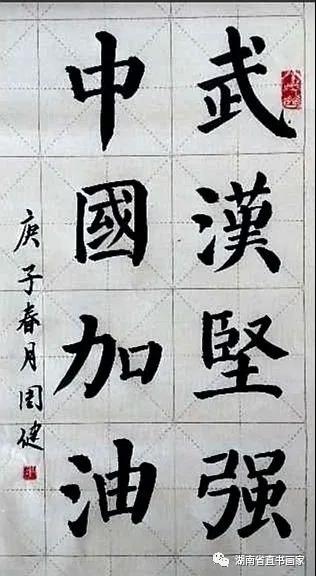 武漢堅强
中國加油
庚子春月周健
湖南省直书画家